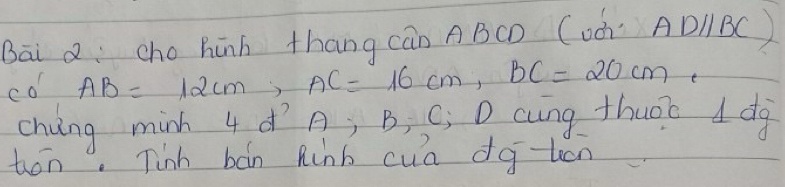 Bài 2: Cho hình thang cân ABCD (với AD//BC)
có AB = 12cm, AC = 16 cm, BC = 20 cm.
chứng minh 4 đ' A; B; C; D cùng thuộc 1 đg
tròn. Tính bán kính của đg tròn